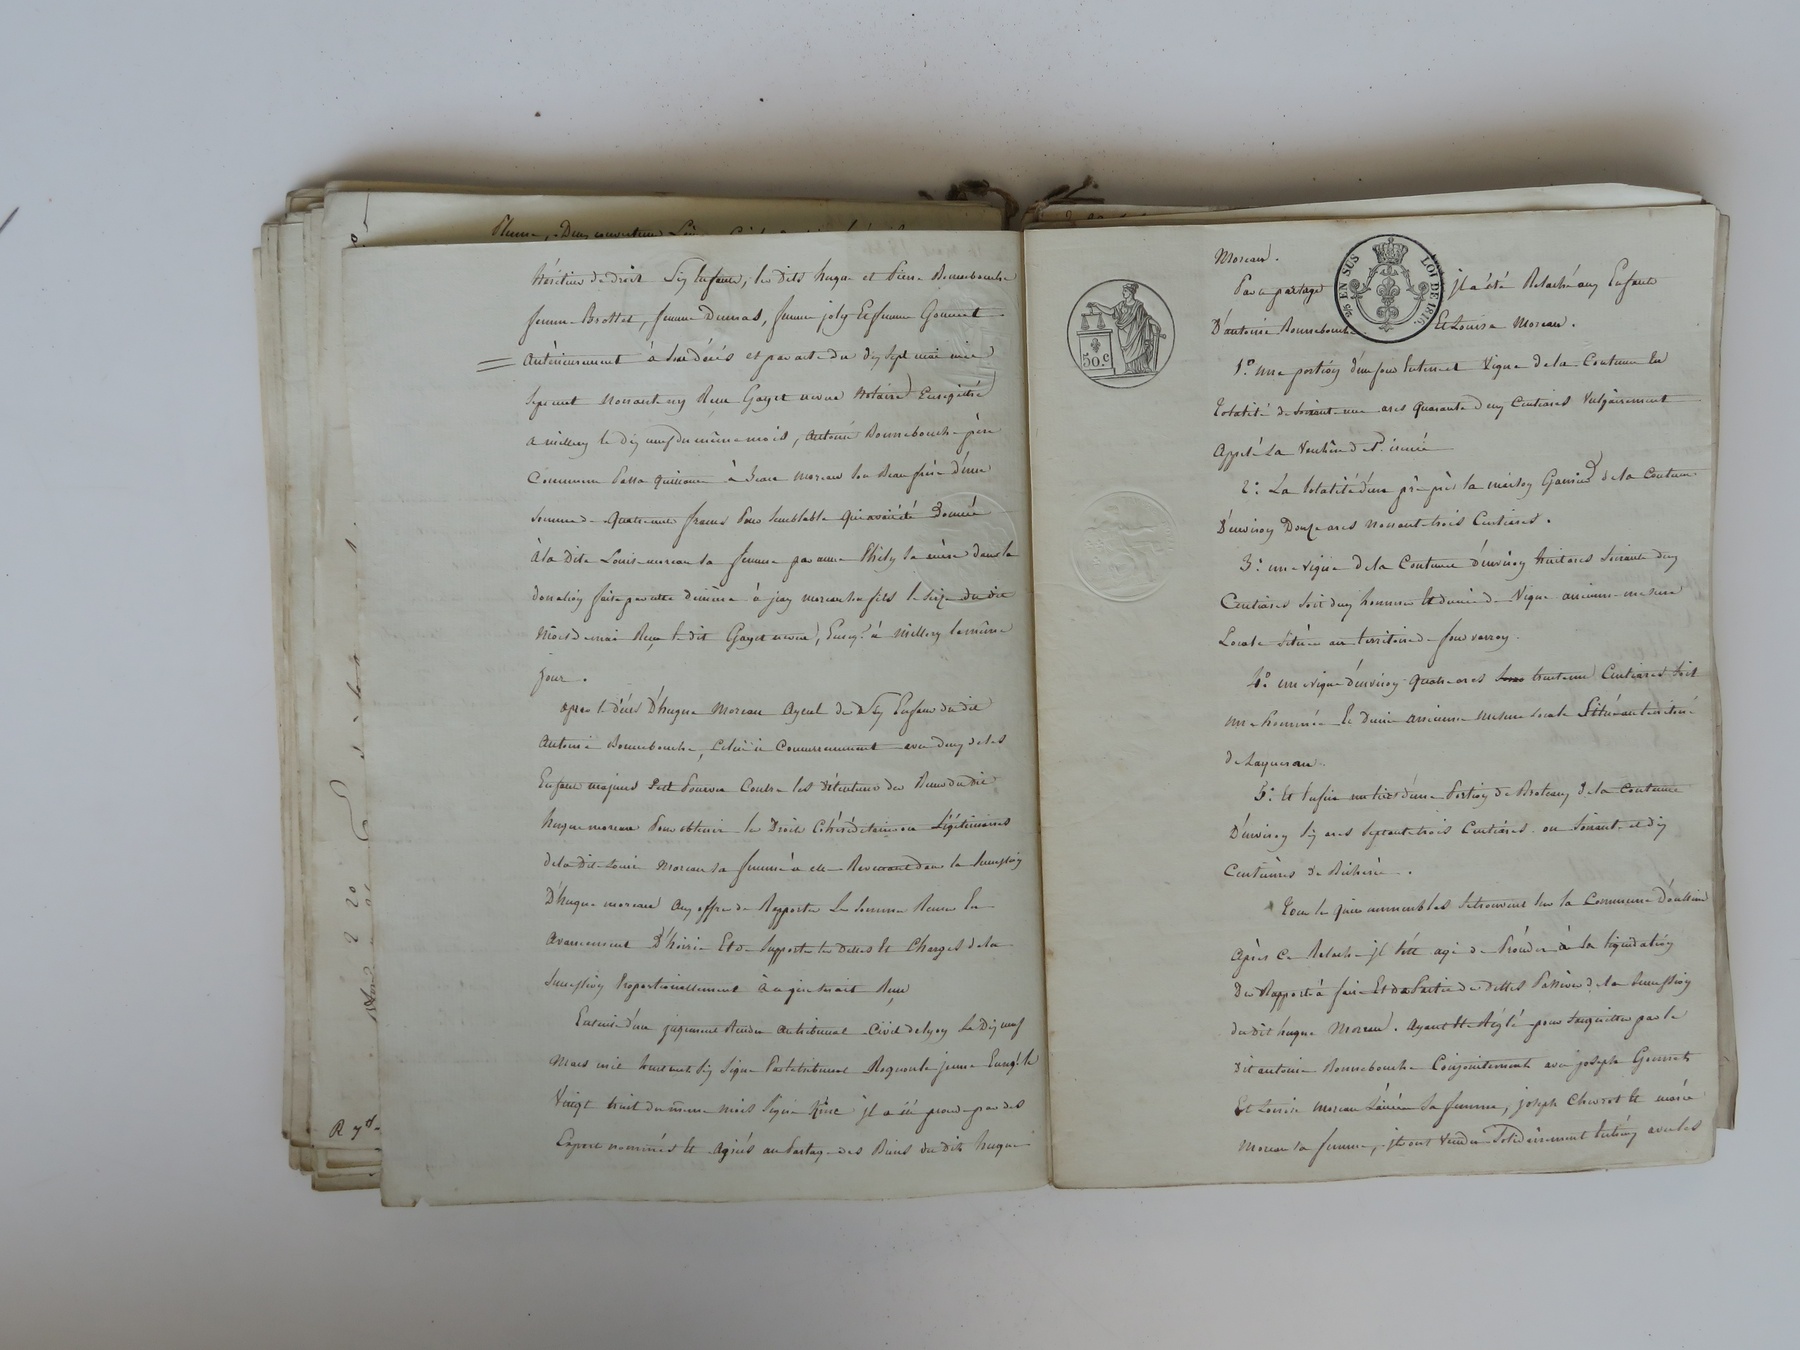 héritiers de droit six enfans, les dits hugue et Pierre Bonnebouche
femme Brottet, femme Dumas, femme joly Et femme Gonnet
Antérieurement à son décès et par acte du dix sept mai mil
sept cent nonante Reçu Gayet neveu Notaire Enregistré
a millery le dix neuf du même mois, Antoine Bonnebouche père
Commun Passa quittance à Jean Moreau son Beau frère d'une
somme de quatre cents francs Pour semblable qui avait été Donnée
à la Dite Louise moreau sa femme par anne Thily sa mère dans la
donation faite par cette dernière à jean moreau son fils le seize du dit
Mois de mai Reçu le dit Gayet neveu, Enreg.é à Millery le même
jour.
après le décès D'hugue Moreau Ayeul de six Enfans du dit
Antoine Bonnebouche, Celui ci Concurremment avec deux de ses
Enfans majeurs s'est Pourvu Contre les détenteurs des Biens du dit
hugue moreau Pour obtenir le Droits Cohéréditaires ou Légitimaires
de la dite Louise Moreau sa femme à elle Revenant dans la Succession
D'hugue moreau aux offres de Rapporter La Somme Reçue En
avancement D'hoirie Et de supporter les Dettes Et Charges de la
Succession Proportionnellement à ce qu'en serait Reçu
Ensuite d'un jugement Rendu au tribunal Civil de lyon Le Dix neuf
Mars mil huit cent six Signé Roquemont jeune Enreg.é le
Vingt huit du même mois Signé il a été procédé par des
Experts nommés Et Agréés au Partage des Biens du Dit hugue
Moreau.
Par ce partage il a été Relaché aux Enfants
D'antoine Bonnebouche Et Louise Moreau.
1.° une portion d'un fond Vigne de la Contenue En
totalité de soixante une ares quarante deux Centiares Vulgairement
Appelé La
2.° La totalité d'un pré près la maison Garnier de la Contenue
D'environ Douze ares nonante trois Centiares.
3.° une vigne de la Contenue d'environ huit ares soixante deux
Centiares soit deux hommées Et demie de Vigne ancienne mesure
Locale située au territoire de
4.° une vigne d'environ quatre ares trente un Centiares soit
une hommée Et Demie ancienne mesure locale Située au territoire
de
5.° Et Enfin un tiers d'une Portion de Broteaux de la Contenue
D'environ six ares septante trois Centiares ou soixante et dix
Centiares de Bicherée.
Tous les quels immeubles se trouvent sur la Commune D'oullins
Après ce Relaché il s'est agi de Procéder à la liquidation
Des Rapports à faire Et de Partie de dettes Passives de la Succession
du dit hugue Moreau. Ayant Eté Réglé pour s'acquitter par le
dit antoine Bonnebouche Conjointement avec joseph Gonnet
Et Louise Moreau L'ainée sa femme, joseph Et marie
Moreau sa femme, ils ont vendu Solidairement Entr'eux avec les
EN SUS
LOI DE 1816.
50.c
R 7d